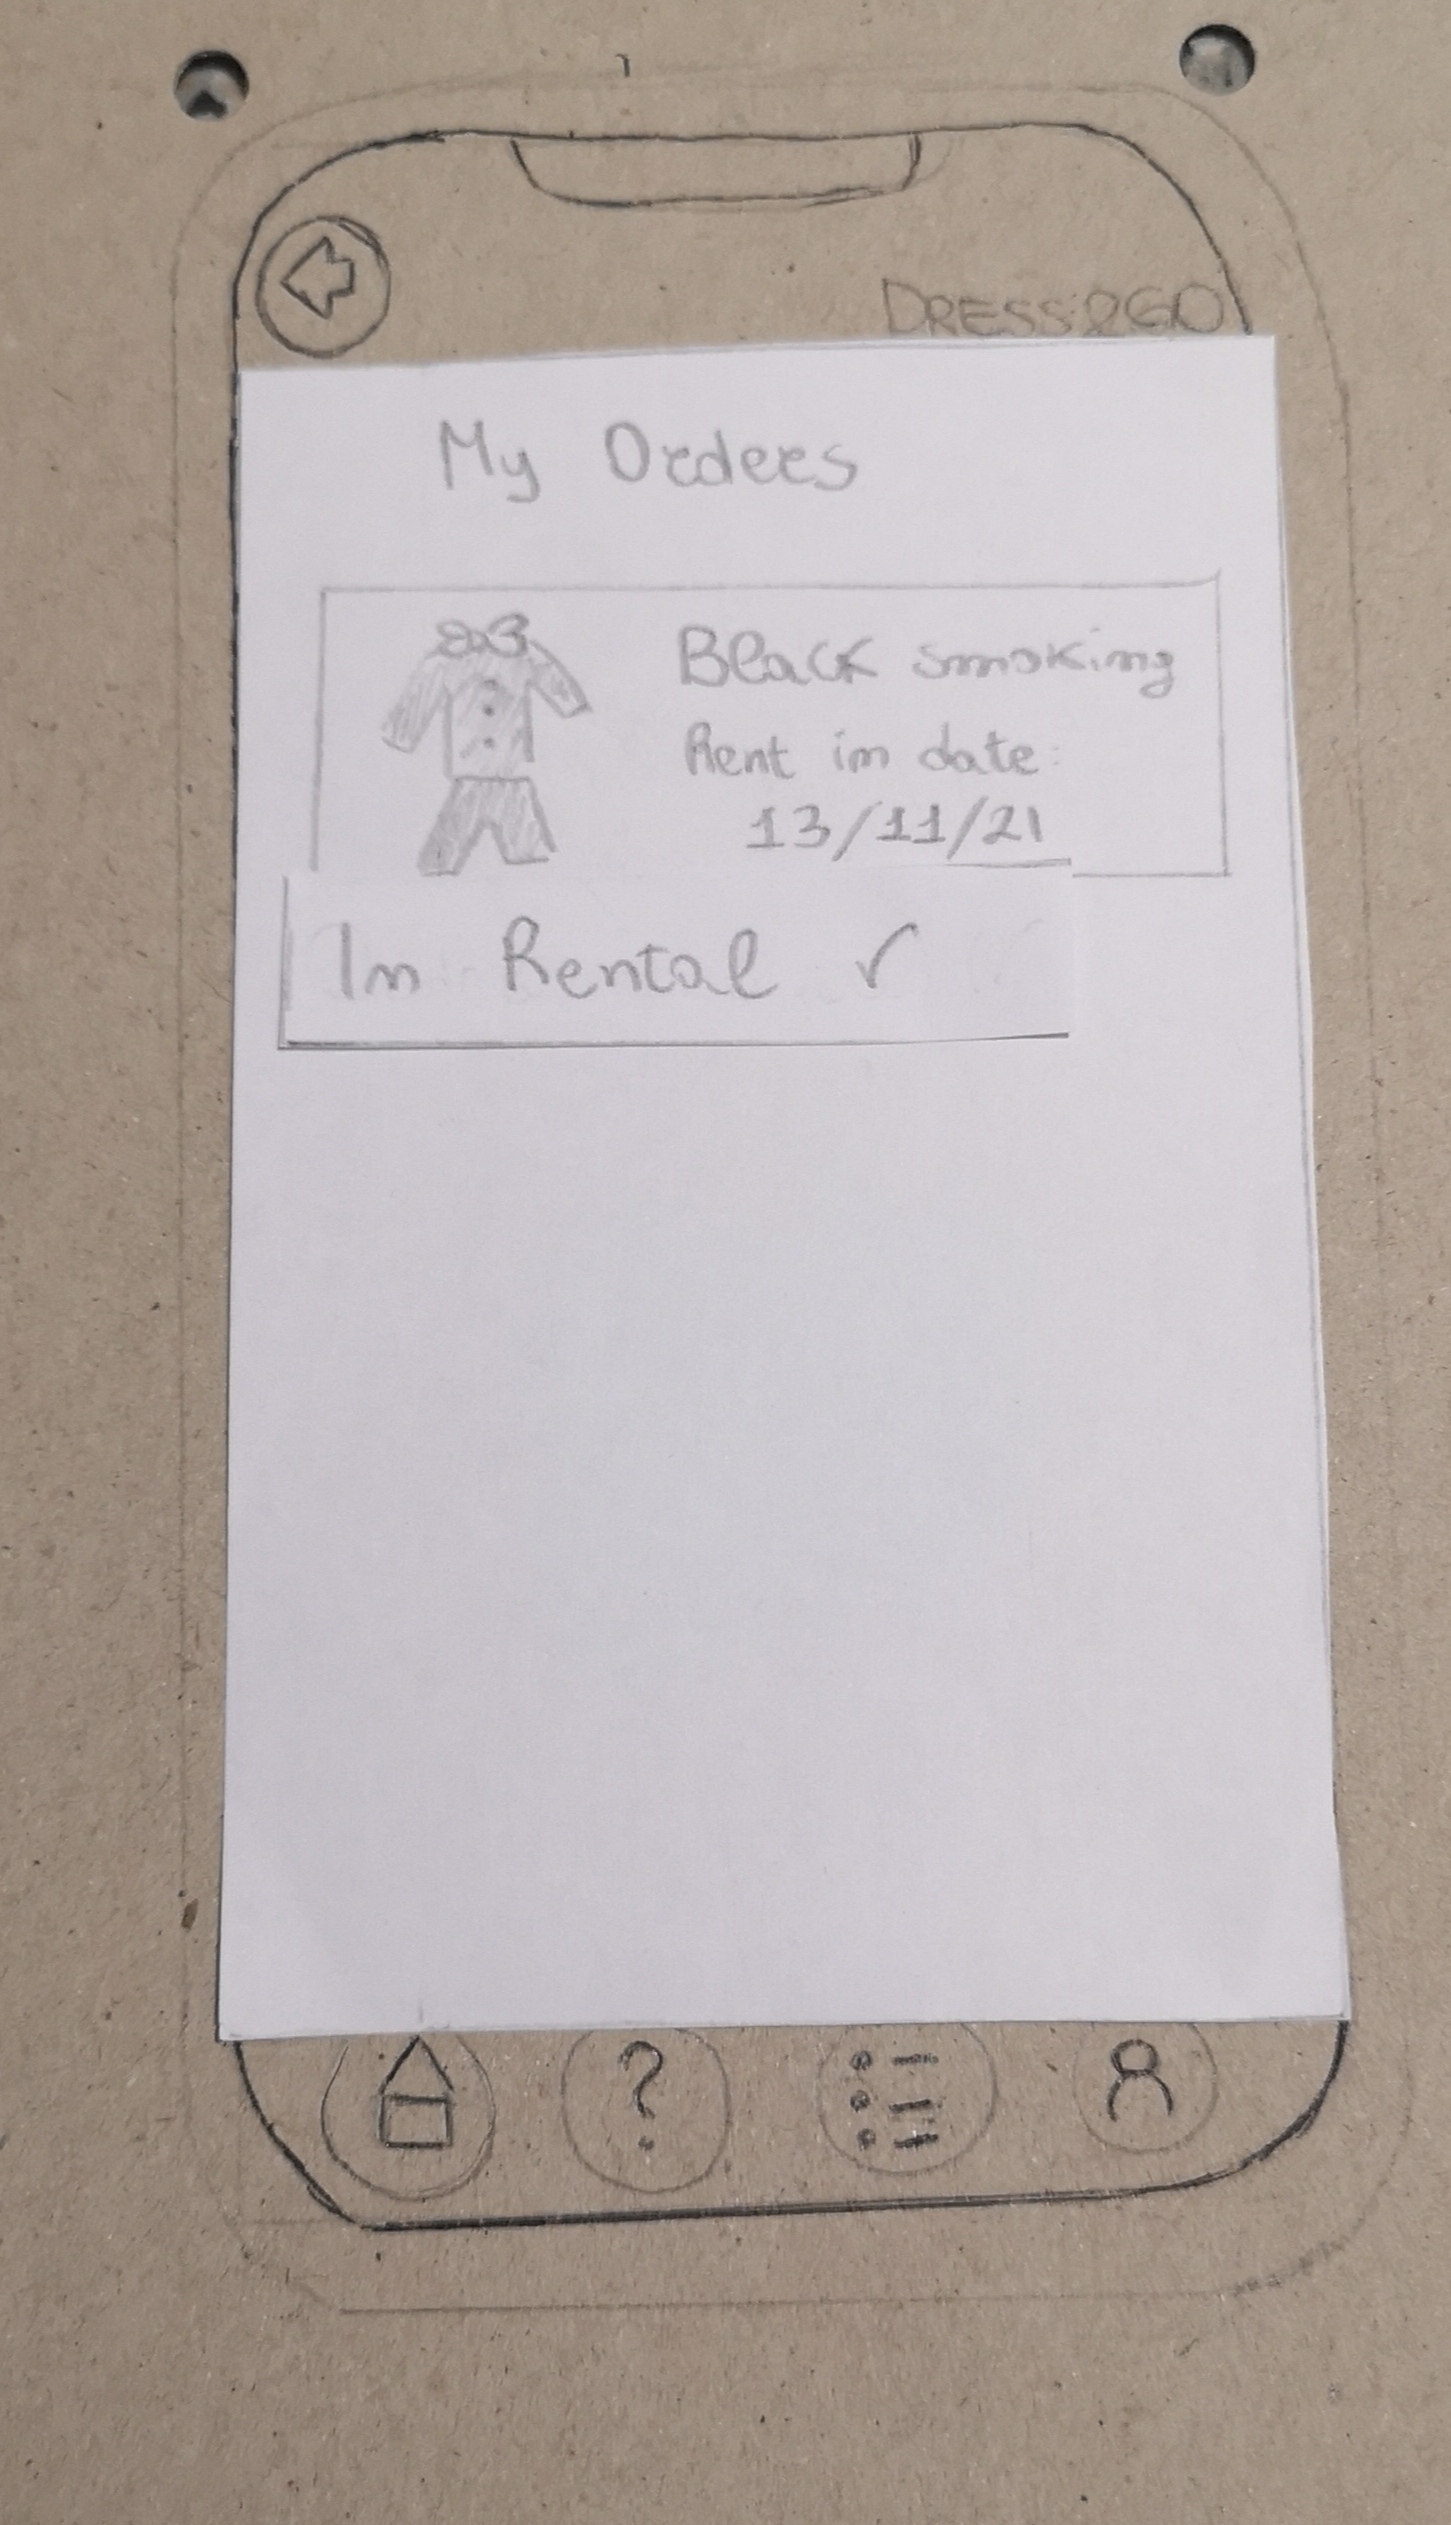 DRESS&GO
My Orders
Black smoking
Rent in date:
13/11/21
In Rental ✓
?